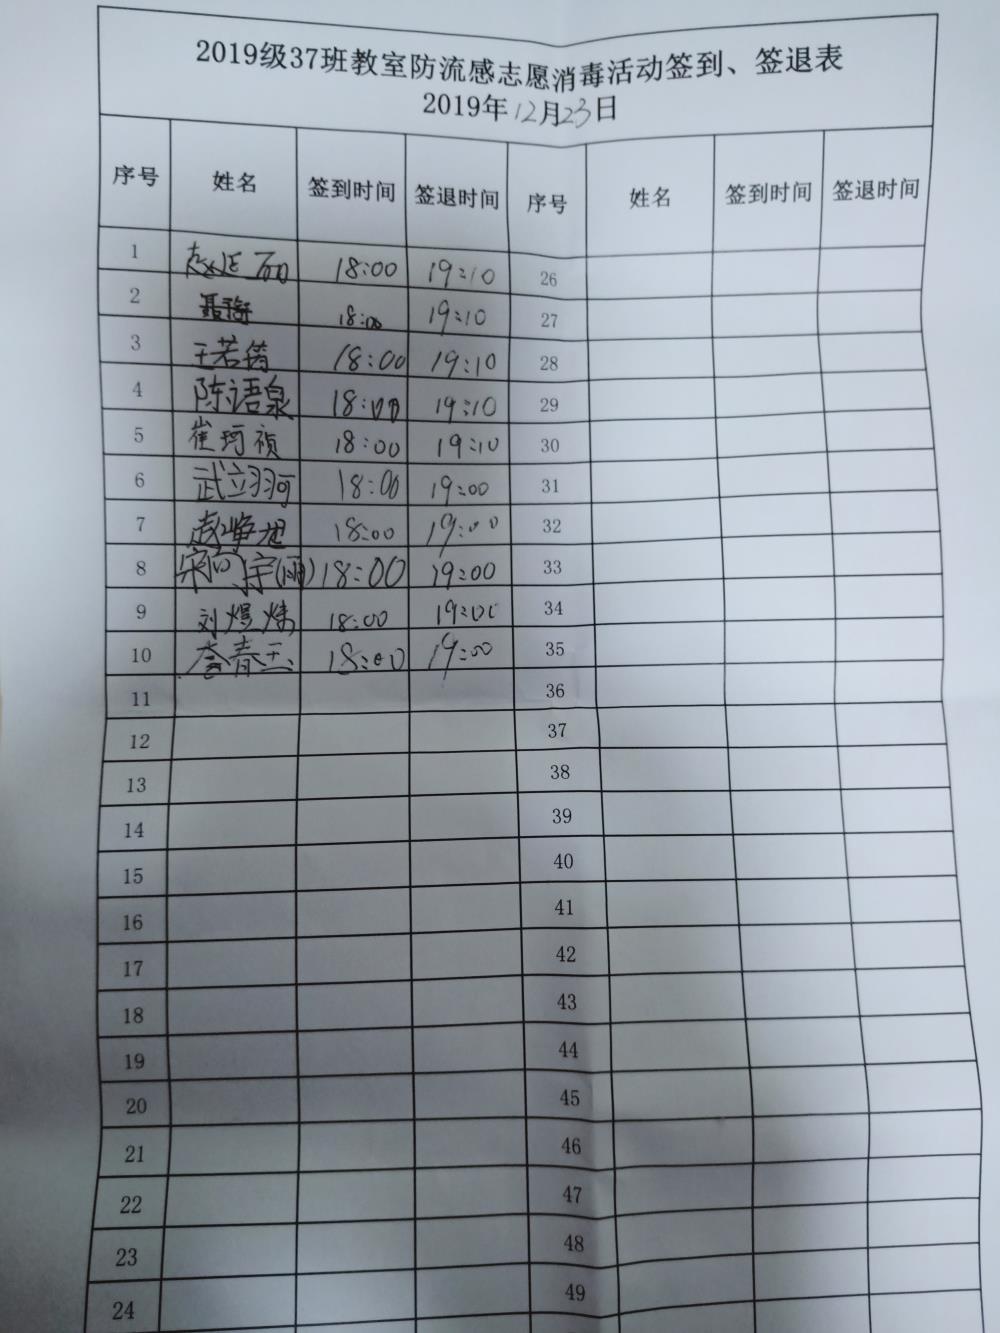 2019级37班教室防流感志愿消毒活动签到、签退表
2019年12月23日
序号 姓名 签到时间 签退时间 序号 姓名 签到时间 签退时间
1 18:00 19:10 26
2 18:00 19:10 27
3 王若 18:00 19:10 28
4 陈语泉 18:00 19:10 29
5 崔珂祯 18:00 19:10 30
6 武立羽河 18:00 19:00 31
7 赵峥旭 18:00 19:00 32
8 宋向宇(雨) 18:00 19:00 33
9 刘煜炜 18:00 19:00 34
10 李春玉 18:00 19:00 35
11 36
12 37
13 38
14 39
15 40
16 41
17 42
18 43
19 44
20 45
21 46
22 47
23 48
24 49